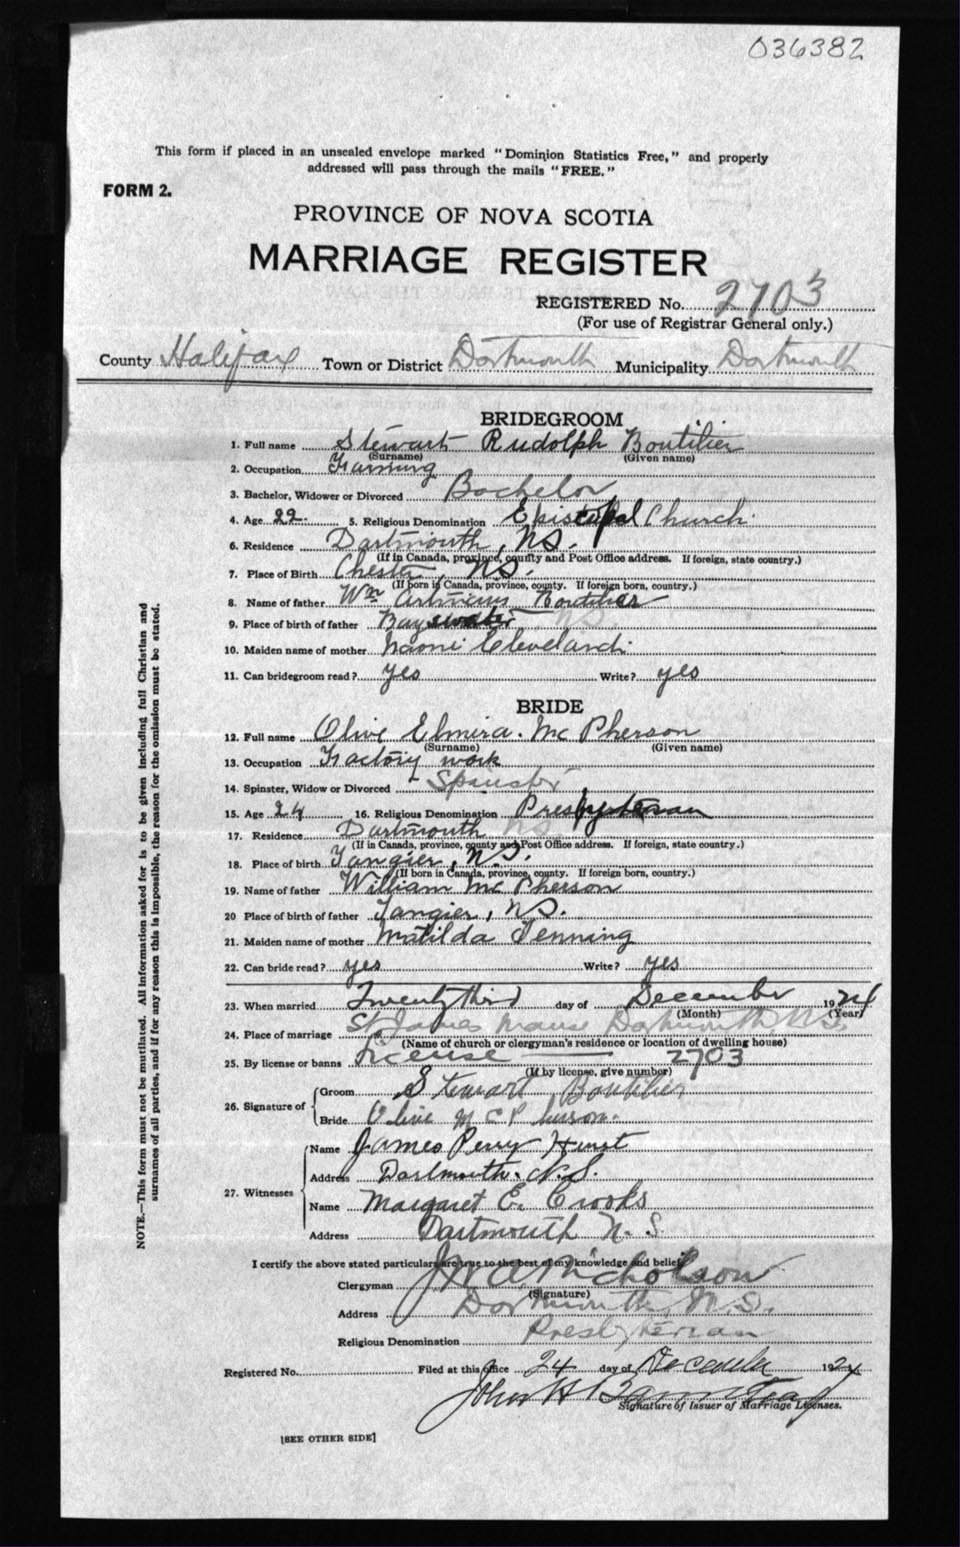 036382
This form if placed in an unsealed envelope marked "Dominion Statistics Free," and properly
addressed will pass through the mails "FREE."
FORM 2.
PROVINCE OF NOVA SCOTIA
MARRIAGE REGISTER
REGISTERED No. 2703
(For use of Registrar General only.)
County Halifax Town or District Dartmouth Municipality Dartmouth
BRIDEGROOM
1. Full name Stewart Rudolph Boutilier
(Surname) (Given name)
2. Occupation Farming
3. Bachelor, Widower or Divorced Bachelor
4. Age 22. 5. Religious Denomination Episcopal Church
6. Residence Dartmouth, N.S.
(If in Canada, province, county and Post Office address. If foreign, state country.)
7. Place of Birth Chester, N.S.
(If born in Canada, province, county. If foreign born, country.)
8. Name of father Wm Artmeus Boutilier
9. Place of birth of father Bayswater N.S.
10. Maiden name of mother Naomi Cleveland
11. Can bridegroom read? yes Write? yes
BRIDE
12. Full name Olive Elmira. McPherson
(Surname) (Given name)
13. Occupation Factory work
14. Spinster, Widow or Divorced Spinster
15. Age 24 16. Religious Denomination Presbyterian
17. Residence Dartmouth N.S.
(If in Canada, province, county and Post Office address. If foreign, state country.)
18. Place of birth Tangier, N.S.
(If born in Canada, province, county. If foreign born, country.)
19. Name of father William McPherson
20 Place of birth of father Tangier, N.S.
21. Maiden name of mother Matilda Jenning
22. Can bride read? yes Write? yes
23. When married Twenty third day of December 1924
(Month) (Year)
24. Place of marriage St James Manse Dartmouth N.S.
(Name of church or clergyman's residence or location of dwelling house)
25. By license or banns License 2703
(If by license, give number)
26. Signature of
Groom Stewart Boutilier
Bride Olive McPherson.
27. Witnesses
Name James Perry Hurst
Address Dartmouth. N.S.
Name Margaret E. Crooks
Address Dartmouth N.S.
I certify the above stated particulars are true to the best of my knowledge and belief.
Clergyman Nicholson
(Signature)
Address Dartmouth, N.S.
Religious Denomination Presbyterian
Registered No. Filed at this office 24 day of December 1924
John H
Signature of Issuer of Marriage Licenses.
[SEE OTHER SIDE]
NOTE.—This form must not be mutilated. All information asked for is to be given including full Christian and
surnames of all parties, and if for any reason this is impossible, the reason for the omission must be stated.